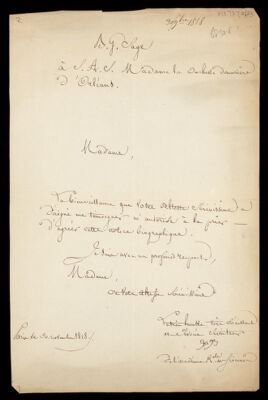 2
30 9bre 1818
B. G. Sage
à S. A. S. Madame la Duchesse douairière
d'Orléans.
Madame,
La bienveillance que Votre Altesse Sérénissime a
daigné me témoigner m'autorise à la prier
d'agréer cette notice biographique.
Je suis avec un profond respect,
Madame,
de Votre Altesse Sérénissime
Le très humble très obéissant
et serviteur
Sage
De l'académie Rle des Sciences
Paris ce 30 novembre 1818.